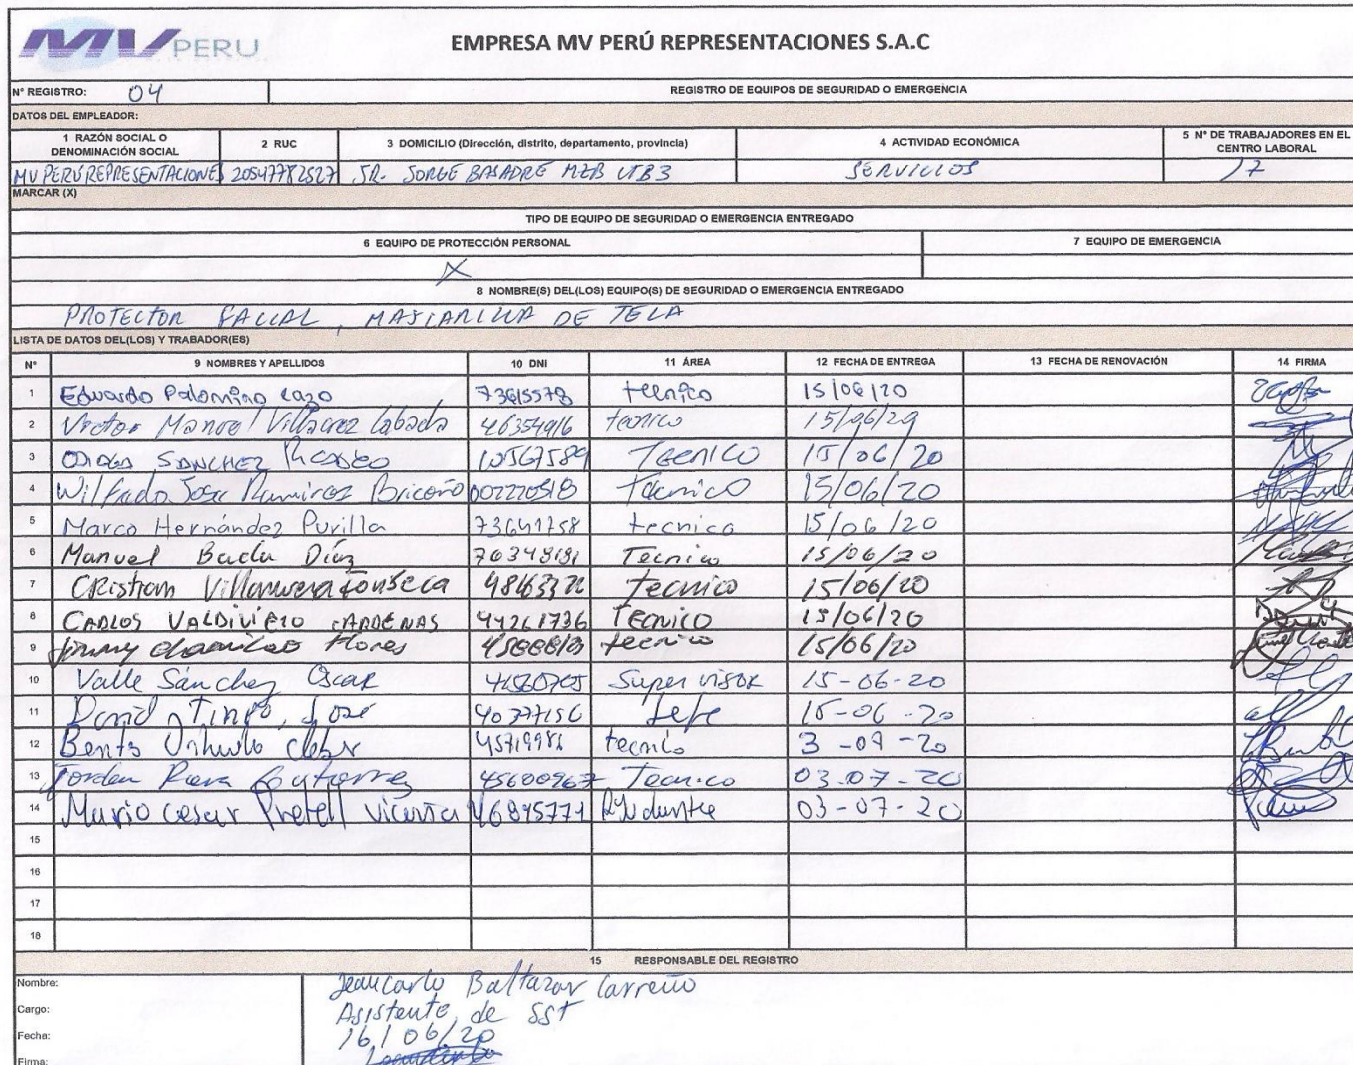 MV PERU
EMPRESA MV PERÚ REPRESENTACIONES S.A.C
N° REGISTRO: 04 REGISTRO DE EQUIPOS DE SEGURIDAD O EMERGENCIA
DATOS DEL EMPLEADOR:
1 RAZÓN SOCIAL O DENOMINACIÓN SOCIAL 2 RUC 3 DOMICILIO (Dirección, distrito, departamento, provincia) 4 ACTIVIDAD ECONÓMICA 5 N° DE TRABAJADORES EN EL CENTRO LABORAL
MV PERÚ REPRESENTACIONES 20547782527 JR. JORGE BASADRE MZB LTB3 SERVICIOS 17
MARCAR (X)
TIPO DE EQUIPO DE SEGURIDAD O EMERGENCIA ENTREGADO
6 EQUIPO DE PROTECCIÓN PERSONAL 7 EQUIPO DE EMERGENCIA
X
8 NOMBRE(S) DEL(LOS) EQUIPO(S) DE SEGURIDAD O EMERGENCIA ENTREGADO
PROTECTOR FACIAL, MASCARILLA DE TELA
LISTA DE DATOS DEL(LOS) Y TRABADOR(ES)
N° 9 NOMBRES Y APELLIDOS 10 DNI 11 ÁREA 12 FECHA DE ENTREGA 13 FECHA DE RENOVACIÓN 14 FIRMA
1 Eduardo Palomino Lazo 73615578 tecnico 15/06/20
2 Victor Manuel Villacrez Labada 46354916 tecnico 15/06/20
3 SANCHEZ 10567589 Tecnico 15/06/20
4 Wilfredo Jose Ramirez Briceño 002220518 Tecnico 15/06/20
5 Marco Hernández Purilla 73641758 tecnico 15/06/20
6 Manuel Díaz Tecnico 15/06/20
7 Cristian Villanueva Fonseca tecnico 15/06/20
8 CARLOS VALDIVIEZO CARDENAS 44261736 TECNICO 15/06/20
9 Jimmy Flores tecnico 15/06/20
10 Valle Sánchez Oscar Supervisor 15-06-20
11 David Tineo, José 40377156 Jefe 15-06-20
12 Bento 45719981 tecnico 3-07-20
13 Jordan 45600967 Tecnico 03-07-20
14 Mario cesar Pretell Vicenta 46845771 Ayudante 03-07-20
15
16
17
18
15 RESPONSABLE DEL REGISTRO
Nombre: Jeancarlo Baltazar Carreño
Cargo: Asistente de SST
Fecha: 16/06/20
Firma: